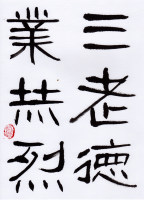 三老德
業共烈